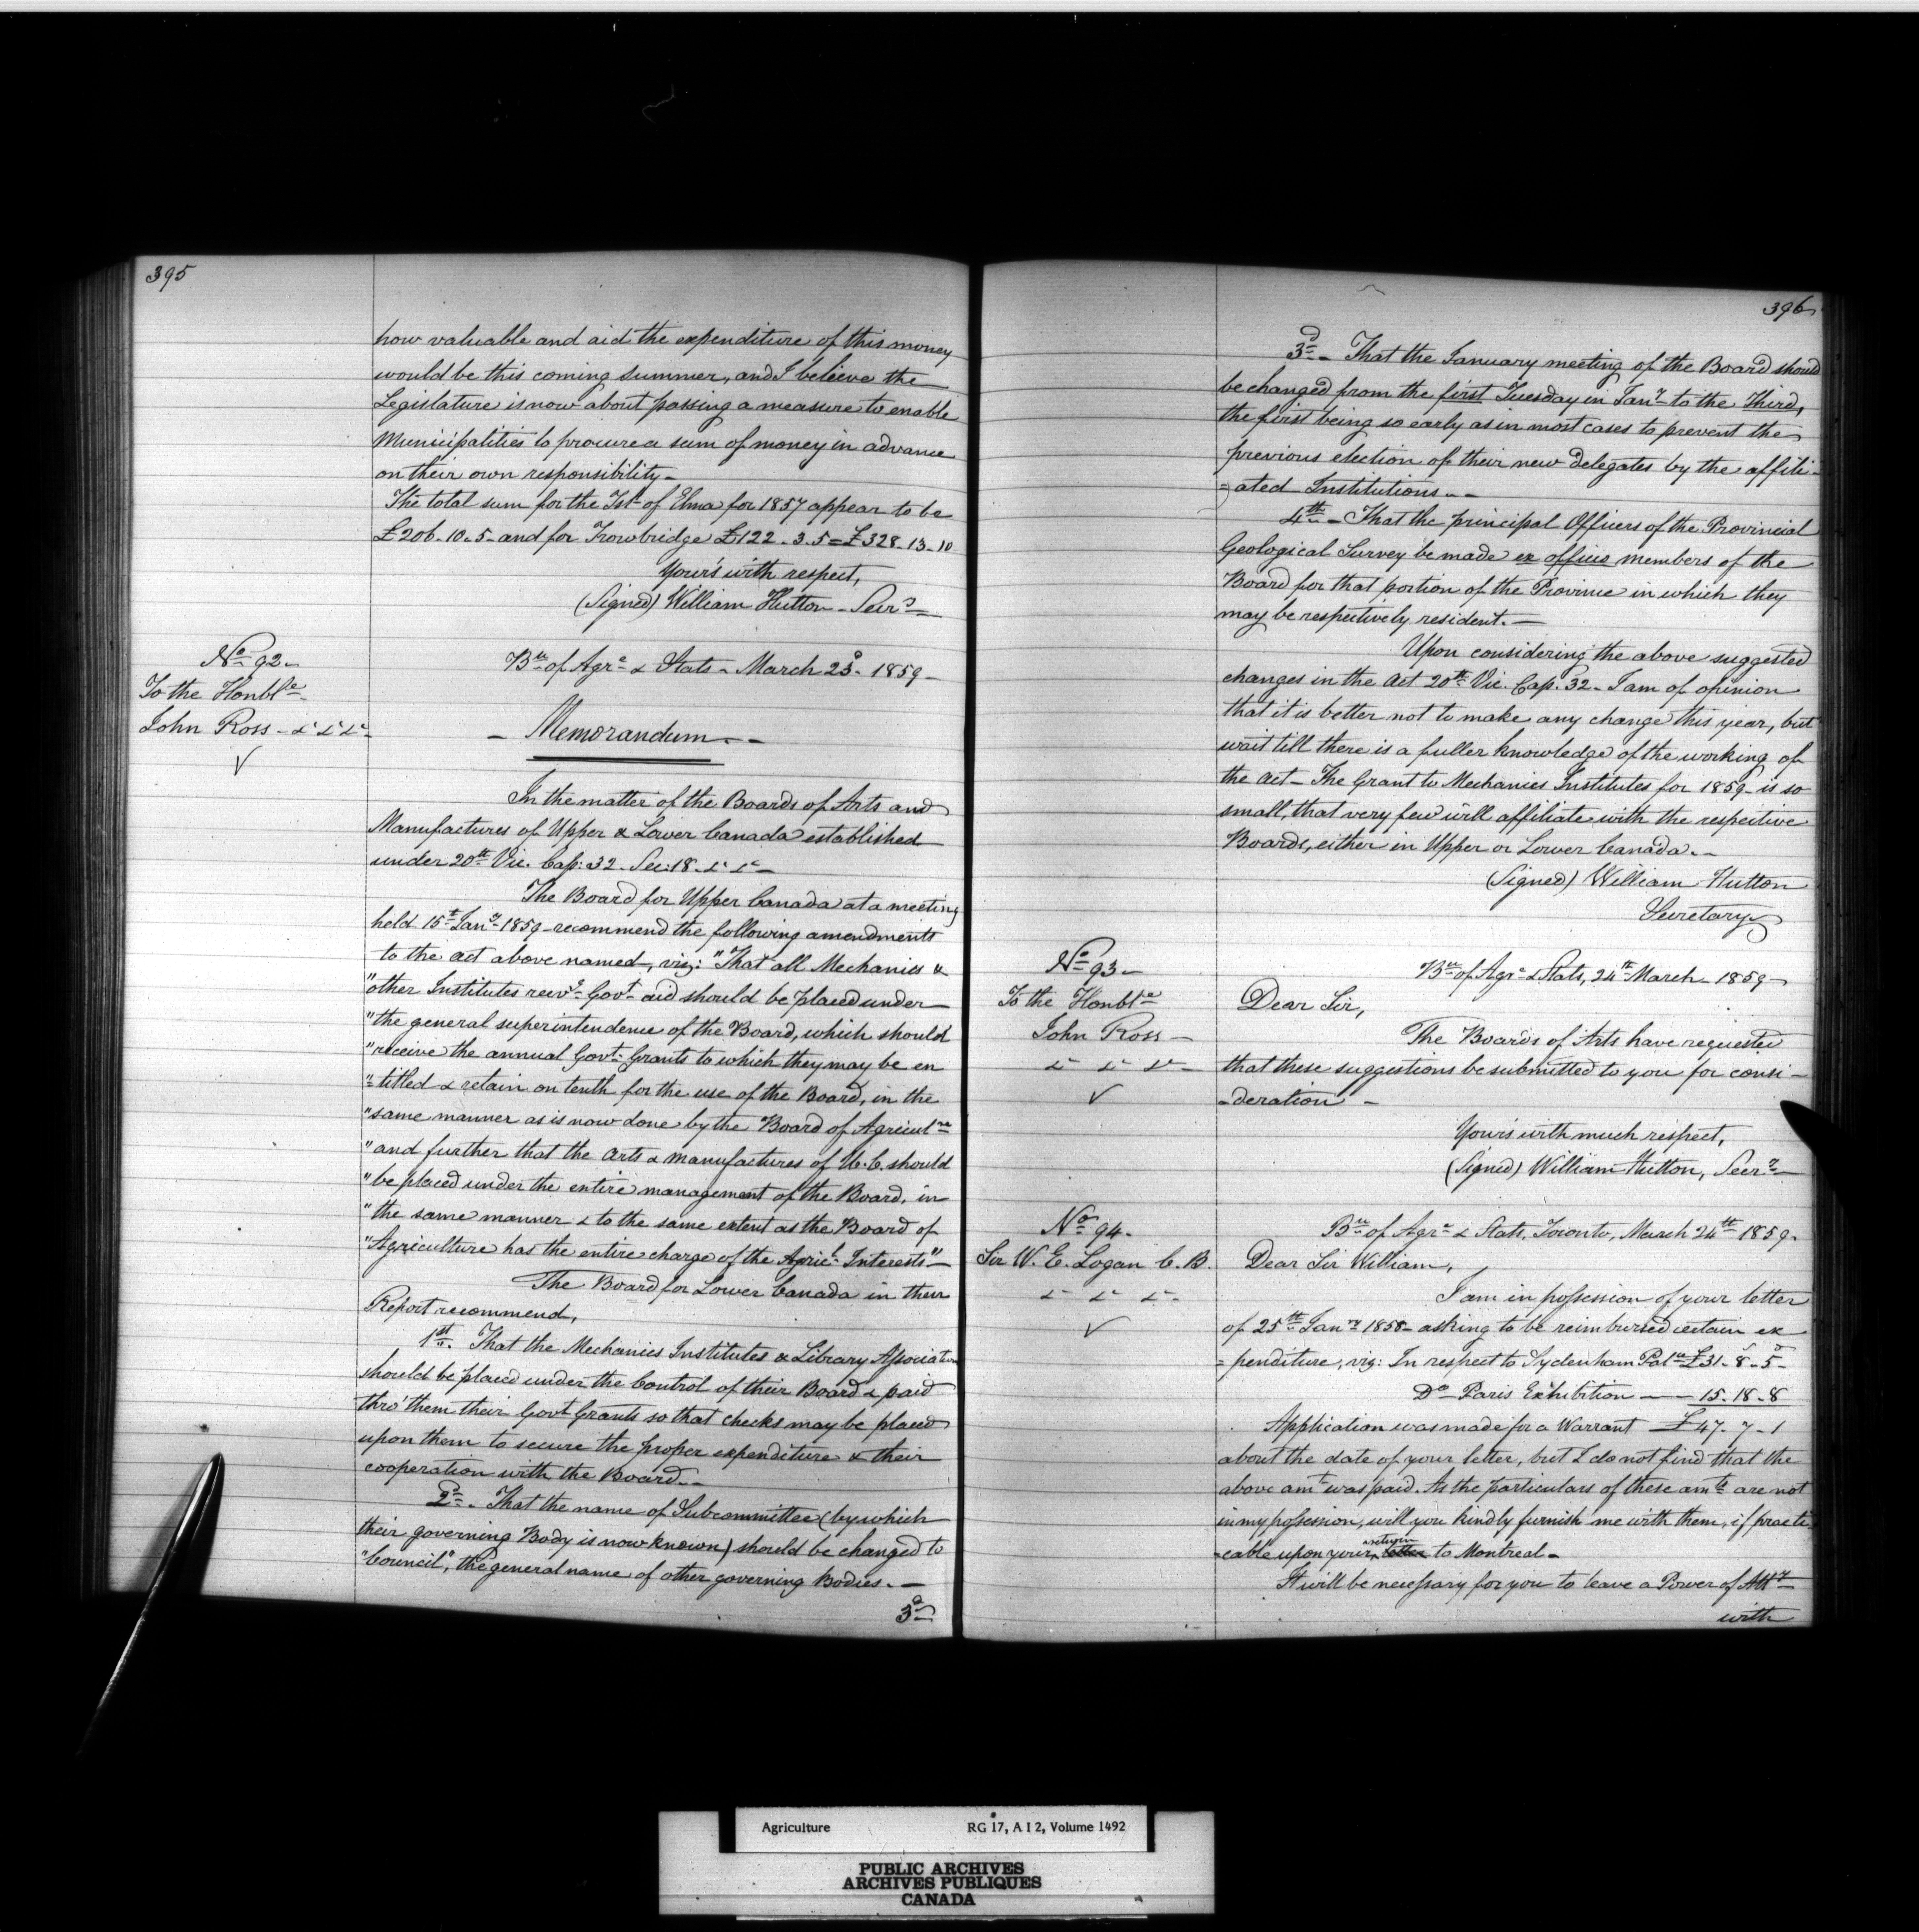 395
how valuable and aid the expenditure of this money
would be this coming summer, and I believe the
Legislature is now about passing a measure to enable
Municipalities to procure a sum of money in advance
on their own responsibility -
The total sum for the Tsh. of Elma for 1857 appear to be
£206. 10. 5 - and for Trowbridge £122. 3. 5 = £328. 13. 10
Your's with respect,
(Signed) William Hutton - Secry
No 92 -
To the Honble
John Ross - &c &c &c
✓
Bu of Agre & Stats - March 23d 1859 -
- Memorandum. -
In the matter of the Boards of Arts and
Manufactures of Upper & Lower Canada established
under 20th Vic. Cap: 32. Sec: 18. &c &c -
The Board for Upper Canada at a meeting
held 15t Jany 1859 - recommend the following amendments
to the act above named, viz: "That all Mechanics &
"other Institutes recvg Govt aid should be placed under
"the general superintendence of the Board, which should
"receive the annual Govt Grants to which they may be en
"=titled & retain on tenth for the use of the Board, in the
"same manner as is now done by the Board of Agricultre
"and further that the Arts & manufactures of U. C. should
"be placed under the entire management of the Board, in
"the same manner & to the same extent as the Board of
"Agriculture has the entire charge of the Agricl Interests" -
The Board for Lower Canada in their
Report recommend,
1st. That the Mechanics Institutes & Library Association
should be placed under the Control of their Board & paid
thro' them their Govt Grants so that checks may be placed
upon them to secure the proper expenditure & their
cooperation with the Board. -
2d. That the name of Subcommittee (by which
their governing Body is now known) should be changed to
"Council", the general name of other governing Bodies. -
3d
396
3d - That the January meeting of the Board should
be changed from the first Tuesday in Jany to the Third,
the first being so early as in most cases to prevent the
previous election of their new Delegates by the affili-
=ated Institutions. -
4th - That the principal Officers of the Provincial
Geological Survey be made ex officio members of the
Board for that portion of the Province in which they
may be respectively resident. -
Upon considering the above suggested
changes in the Act 20th Vic. Cap. 32 - I am of opinion
that it is better not to make any change this year, but
wait till there is a fuller knowledge of the working of
the Act - The Grant to Mechanics Institutes for 1859 is so
small, that very few will affiliate with the respective
Boards, either in Upper or Lower Canada. -
(Signed) William Hutton
Secretary
No 93 -
To the Honble
John Ross -
&c &c &c -
✓
Bu of Agre & Stats, 24th March - 1859 -
Dear Sir,
The Boards of Arts have requested
that these suggestions be submitted to you for consi-
-deration -
Your's with much respect,
(Signed) William Hutton, Secry
No 94 -
Sir W. E. Logan C. B.
&c &c &c -
✓
Bu of Agre & Stats, Toronto, March 24th 1859 -
Dear Sir William,
I am in possession of your letter
of 25th Jany 1858 - asking to be reimbursed certain ex
=penditure, viz: In respect to Sydenham Palce £31 - 8 - 5 -
Do - Paris Exhibition - - 15. 18. 8
Application was made for a Warrant £47 - 7 - 1
about the date of your letter, but I do not find that the
above amt was paid. As the particulars of these amts are not
in my possession, will you kindly furnish me with them, if practi
=cable upon your return letter to Montreal -
It will be necessary for you to leave a Power of Atty
with
Agriculture RG 17, A I 2, Volume 1492
PUBLIC ARCHIVES
ARCHIVES PUBLIQUES
CANADA